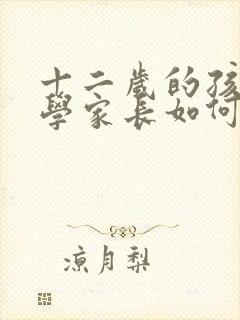 十二歲的孩
學家長如何
涼月梨